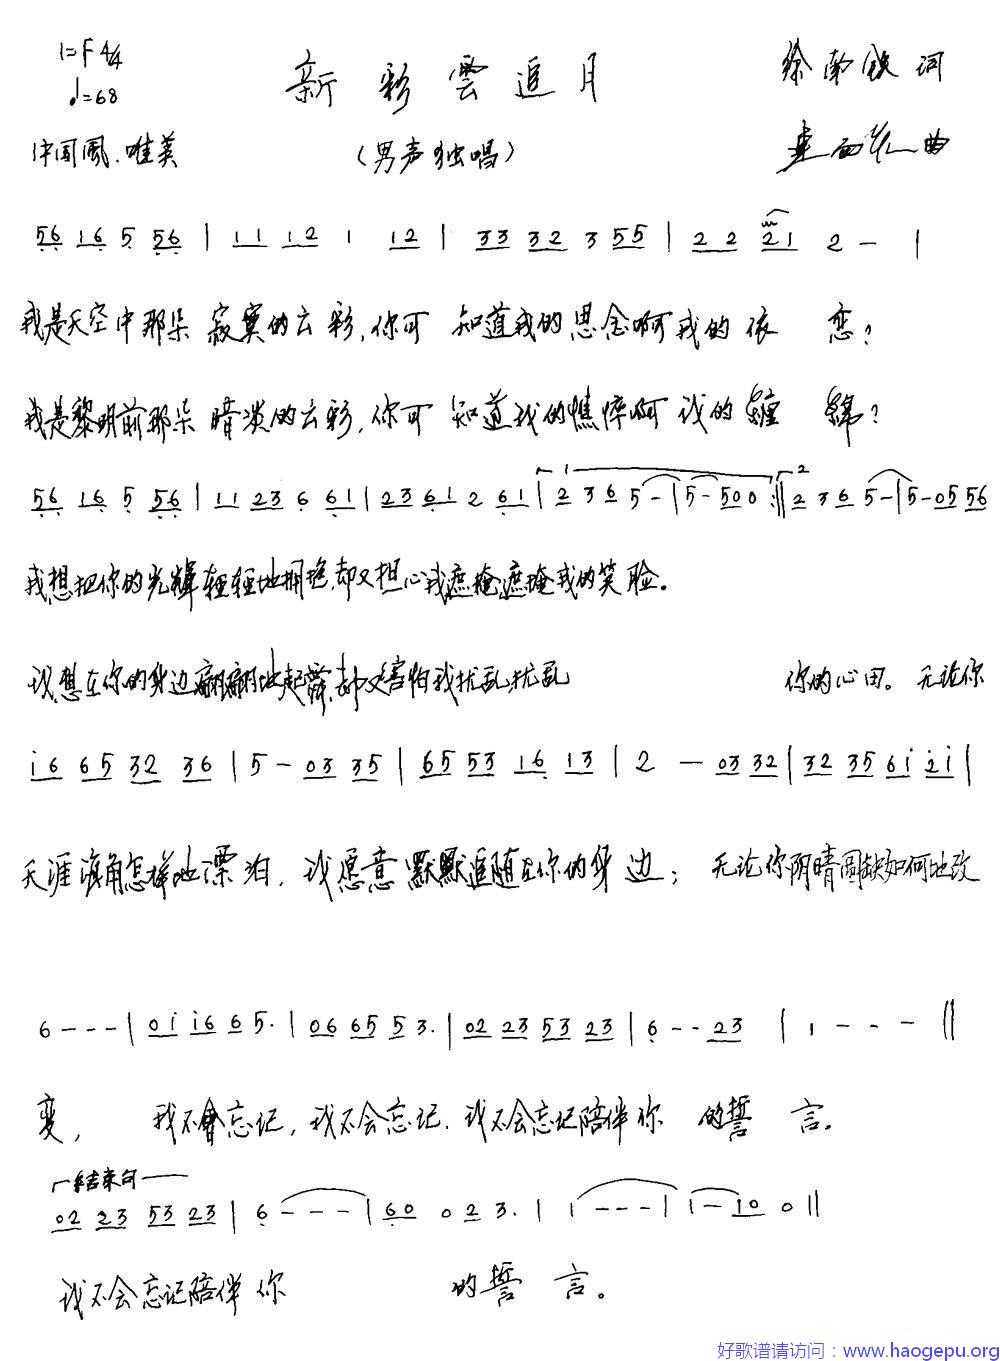 1=F 4/4
新彩雲追月
徐南铁 词
♩=68
中国風.唯美
（男声独唱）
曲
56 16 5 56 | 11 12 1 12 | 33 32 3 55 | 22 21 2 - |
我是天空中那朵寂寞的云彩,你可知道我的思念啊我的依恋?
我是黎明前那朵暗淡的云彩,你可知道我的憔悴啊我的缠绵?
56 16 5 56 | 11 23 6 61 | 23 61 2 61 | 1 2 36 5 - | 5 - 500 :|| 2 2 36 5 - | 5 - 05 56
我想把你的光輝轻轻地拥抱,却又担心我遮掩遮掩我的笑脸。
我想在你的身边翩翩地起舞,却又害怕我扰乱扰乱你的心田。无论你
i6 65 32 36 | 5 - 03 35 | 65 53 16 13 | 2 - 03 32 | 32 35 6i 2i |
天涯海角怎样地漂泊,我愿意默默追随在你的身边;无论你阴晴圆缺如何地改
6 - - - | 0i i6 6 5. | 06 65 5 3. | 02 23 53 23 | 6 - - 23 | 1 - - - ||
变,我不會忘记,我不会忘记.我不会忘记陪伴你的誓言。
结束句
02 23 53 23 | 6 - - - | 60 0 2 3. | 1 - - - | 1 - 10 0 ||
我不会忘记陪伴你的誓言。
好歌谱请访问：www.haogepu.org